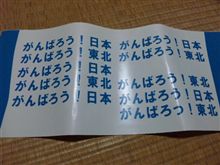 がんばろう！日本
がんばろう！東北
がんばろう！日本
がんばろう！東北
がんばろう！日本
がんばろう！東北
がんばろう！日本
がんばろう！東北
がんばろう！日本
がんばろう！東北